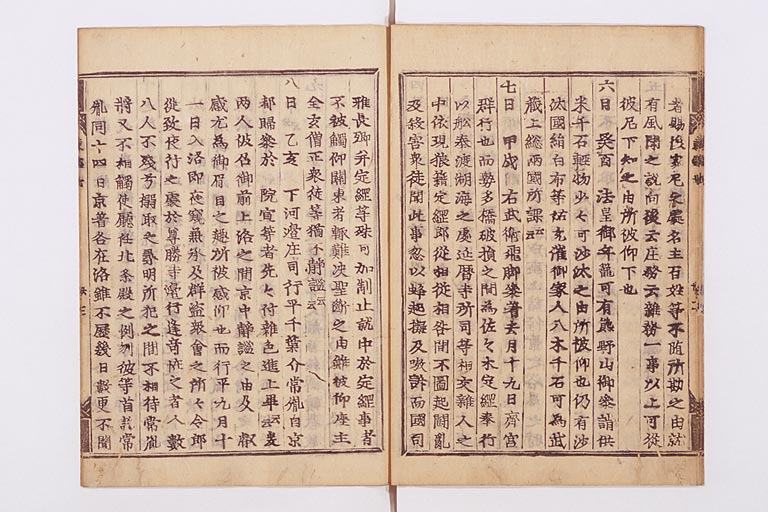 有風聞之説向後云庄務云雜務一事以上可從
彼尼下知之由所被仰下也
六日 癸酉 法皇御年籠可有熊野山御參詣供
米千石輕物少々可沙汰之由所被仰也仍有沙
汰國絹白布等依充催御家人八木千石可為武
藏上總兩國所課云云
七日 甲戌 右武衛飛脚參著去月十九日齊宮
群行也而勢多橋破損之間為佐々木定經奉行
以舩奉渡湖海之處延暦寺所司等相交雜人之
中依現狼藉定經郎從相從咎間不圖起鬪亂
及殺害衆徒聞此事忽以蜂起擬及嗷訴而國司
雅長卿并定經等殊可加制止就中於定經事者
不被觸仰關東者輙難决聖斷之由雖被仰座主
全玄僧正衆徒等猶不靜謐云云
八日 乙亥 下河邊庄司行平千葉介常胤自京
都歸參於 院宣等者先々付雜色進上畢云云爰
两人被召御前上洛之間京中静謐之由及 叡
感尤為御眉目之趣所被感仰也而行平九月十
一日入洛即夜窺 及群盗衆會之所々令郎
從致夜行之處於尊勝寺邊行逢奇恠之者人數
八人不殘 搦取之 明所犯之間不相待常胤
將又不相觸使廳任北条殿之例刎彼等首訖常
胤同十四日京著各在洛雖不歴幾日數更不聞